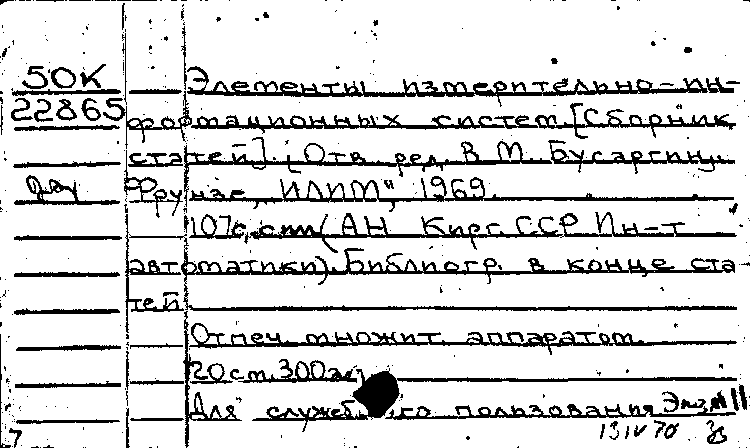 50К
22865
Элементы измерительно-ин-
формационных систем. [Сборник
статей]. [Отв. ред. В. М. Бусаргин].
Фрунзе, „ИЛИМ", 1969.
107с. ст. (АН Кирг. ССР. Ин-т
автоматики). Библиогр. в конце ста-
тей
Отпеч. множит. аппаратом.
20 см. 300 экз
Для служебного пользования Экз. № 11
13 IV 70